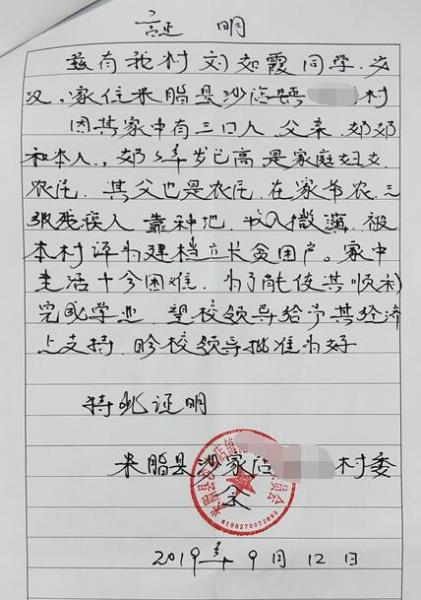 证 明
兹有我村刘如霞同学,女
汉,家住米脂县沙店镇 村
因其家中有三口人,父亲,奶奶
和本人,奶奶年岁已高是家庭妇女
农民,其父也是农民,在家务农,三
级残疾人 靠种地,收入微薄,被
本村评为建档立卡贫困户。家中
生活十分困难,为了能使其顺利
完成学业,望校领导给予其经济
上支持,盼校领导批准为好
特此证明
米脂县沙家店 村委
会
2019年9月12日
6108270032869